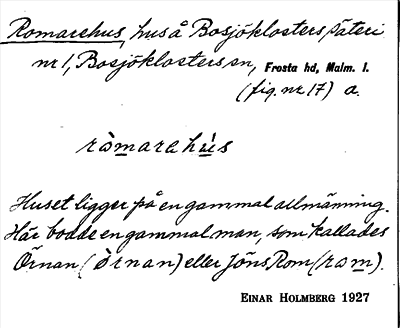 Romarehus, hus å Bosjöklosters säteri
nr 1, Bosjöklosters sn, Frosta hd, Malm. l.
(fig. nr 17) a.
ròmarahús
Huset ligger på en gammal allmänning.
Här bodde en gammal man, som kallades
Örnan (òrnan) eller Jöns Rom (ram).
EINAR HOLMBERG 1927